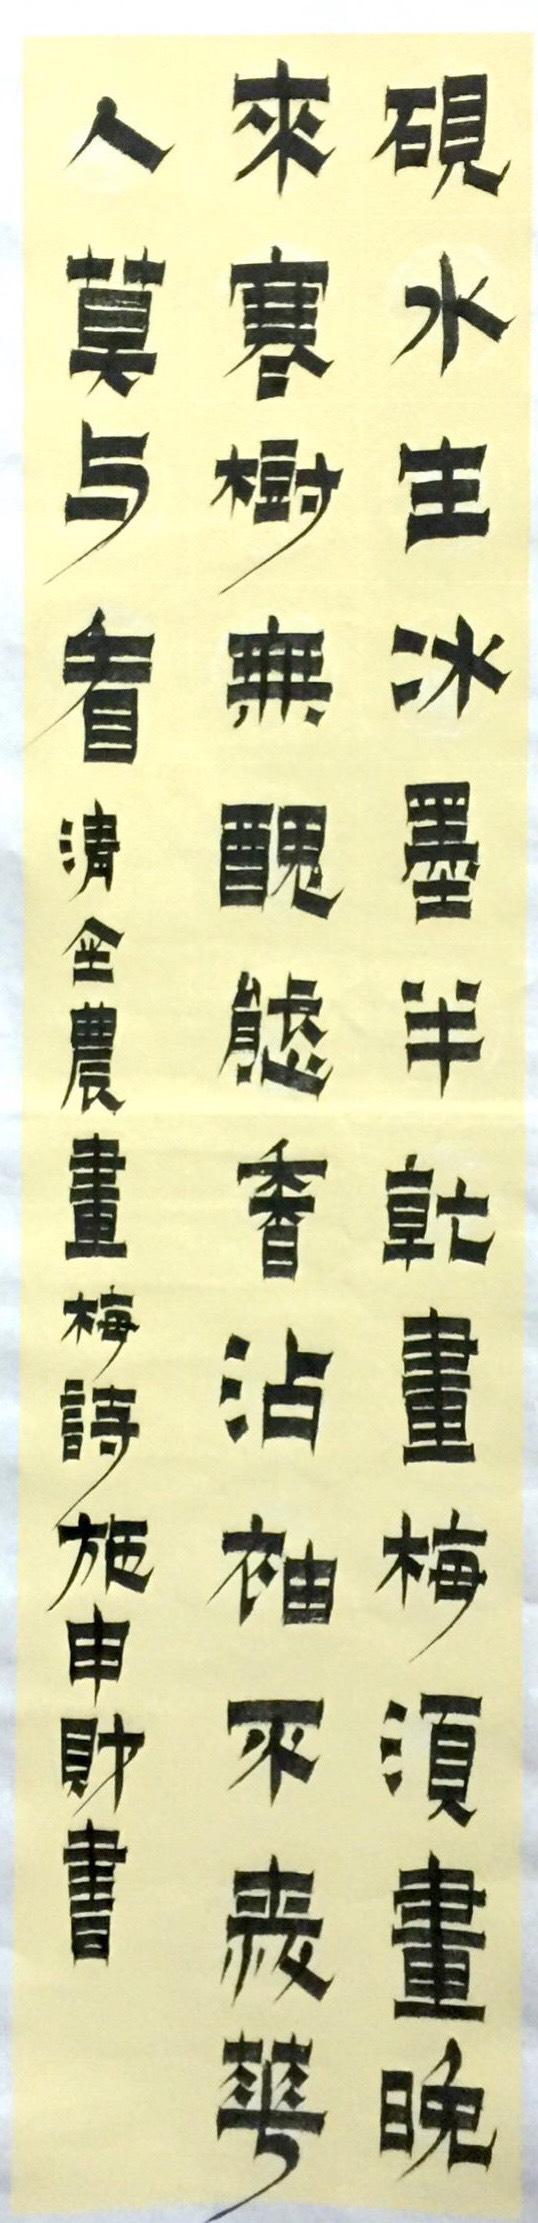 硯水生冰墨半乾畫梅須畫晚
來寒樹無醜態香沾袖不愛華
人莫与看清金農畫梅詩施申財書